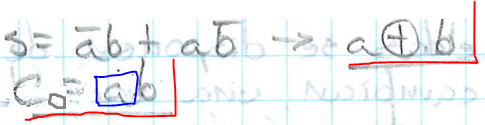 s = a̅b + ab̅ -> a ⊕ b
C₀ = ab